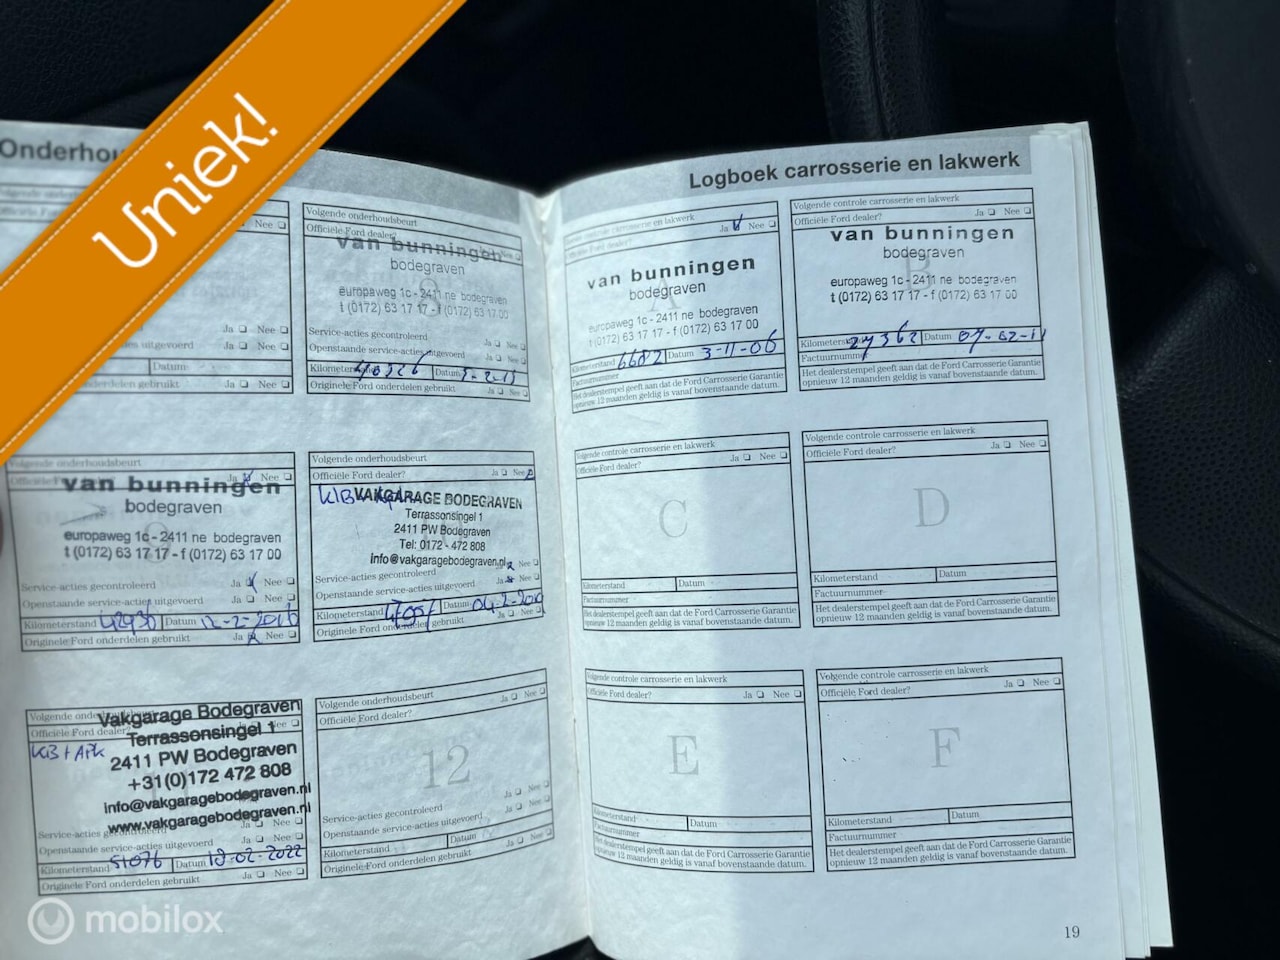 Uniek!
Nee
Ja Nee
Ja Nee
Datum
Ja Nee
Volgende onderhoudsbeurt
Officiële Ford dealer?
van bunningen
bodegraven
europaweg 1c - 2411 ne bodegraven
t (0172) 63 17 17 - f (0172) 63 17 00
Service-acties gecontroleerd Ja Nee
Openstaande service-acties uitgevoerd Ja Nee
Datum
Originele Ford onderdelen gebruikt Ja Nee
Volgende onderhoudsbeurt
Ja Nee
van bunningen
bodegraven
europaweg 1c - 2411 ne bodegraven
t (0172) 63 17 17 - f (0172) 63 17 00
Service-acties gecontroleerd Ja Nee
Openstaande service-acties uitgevoerd Ja Nee
Kilometerstand Datum 12-2-2016
Originele Ford onderdelen gebruikt Ja Nee
Volgende onderhoudsbeurt
Officiële Ford dealer? Ja Nee
VAKGARAGE BODEGRAVEN
Terrassonsingel 1
2411 PW Bodegraven
Tel: 0172 - 472 808
info@vakgaragebodegraven.nl
Service-acties gecontroleerd Ja Nee
Openstaande service-acties uitgevoerd Ja Nee
Kilometerstand Datum
Originele Ford onderdelen gebruikt Ja Nee
Vakgarage Bodegraven
Terrassonsingel 1
KIB + APK
2411 PW Bodegraven
+31(0)172 472 808
info@vakgaragebodegraven.nl
www.vakgaragebodegraven.nl
Openstaande service-acties uitgevoerd Ja Nee
Kilometerstand 51076 Datum 18-02-2022
Originele Ford onderdelen gebruikt Ja Nee
Volgende onderhoudsbeurt
Officiële Ford dealer? Ja Nee
12
Service-acties gecontroleerd Ja Nee
Openstaande service-acties uitgevoerd Ja Nee
Kilometerstand Datum
Originele Ford onderdelen gebruikt Ja Nee
Logboek carrosserie en lakwerk
Ja Nee
A
van bunningen
bodegraven
europaweg 1c - 2411 ne bodegraven
t (0172) 63 17 17 - f (0172) 63 17 00
Kilometerstand 6682 Datum 3-11-06
Factuurnummer
Het dealerstempel geeft aan dat de Ford Carrosserie Garantie
opnieuw 12 maanden geldig is vanaf bovenstaande datum.
Volgende controle carrosserie en lakwerk
Officiële Ford dealer? Ja Nee
B
van bunningen
bodegraven
europaweg 1c - 2411 ne bodegraven
t (0172) 63 17 17 - f (0172) 63 17 00
27362 Datum 07-02-11
Factuurnummer
Het dealerstempel geeft aan dat de Ford Carrosserie Garantie
opnieuw 12 maanden geldig is vanaf bovenstaande datum.
Volgende controle carrosserie en lakwerk
Officiële Ford dealer? Ja Nee
C
Kilometerstand Datum
Factuurnummer
Het dealerstempel geeft aan dat de Ford Carrosserie Garantie
opnieuw 12 maanden geldig is vanaf bovenstaande datum.
Volgende controle carrosserie en lakwerk
Officiële Ford dealer? Ja Nee
D
Kilometerstand Datum
Factuurnummer
Het dealerstempel geeft aan dat de Ford Carrosserie Garantie
opnieuw 12 maanden geldig is vanaf bovenstaande datum.
Volgende controle carrosserie en lakwerk
Officiële Ford dealer? Ja Nee
E
Kilometerstand Datum
Factuurnummer
Het dealerstempel geeft aan dat de Ford Carrosserie Garantie
opnieuw 12 maanden geldig is vanaf bovenstaande datum.
Volgende controle carrosserie en lakwerk
Officiële Ford dealer? Ja Nee
F
Kilometerstand Datum
Factuurnummer
Het dealerstempel geeft aan dat de Ford Carrosserie Garantie
opnieuw 12 maanden geldig is vanaf bovenstaande datum.
19
mobilox